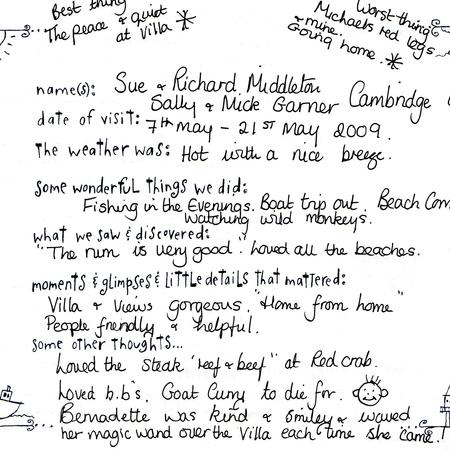 Best thing
The peace & quiet
at Villa
Worst things
Michaels red legs
& mine.
Going home.
name(s): Sue & Richard Middleton
Sally & Mick Garner Cambridge
date of visit: 7th May - 21st May 2009.
The weather was: Hot with a nice breeze.
some wonderful things we did:
Fishing in the Evenings. Boat trip out. Beach Com
Watching wild monkeys.
what we saw & discovered:
"The rum is very good". Loved all the beaches.
moments & glimpses & little details that mattered:
Villa & Views gorgeous. "Home from home"
People friendly & helpful.
some other thoughts...
Loved the steak 'reef & beef' at Red crab.
Loved h.b's. Goat Curry to die for.
Bernadette was kind & smiley & waved
her magic wand over the Villa each time she came!